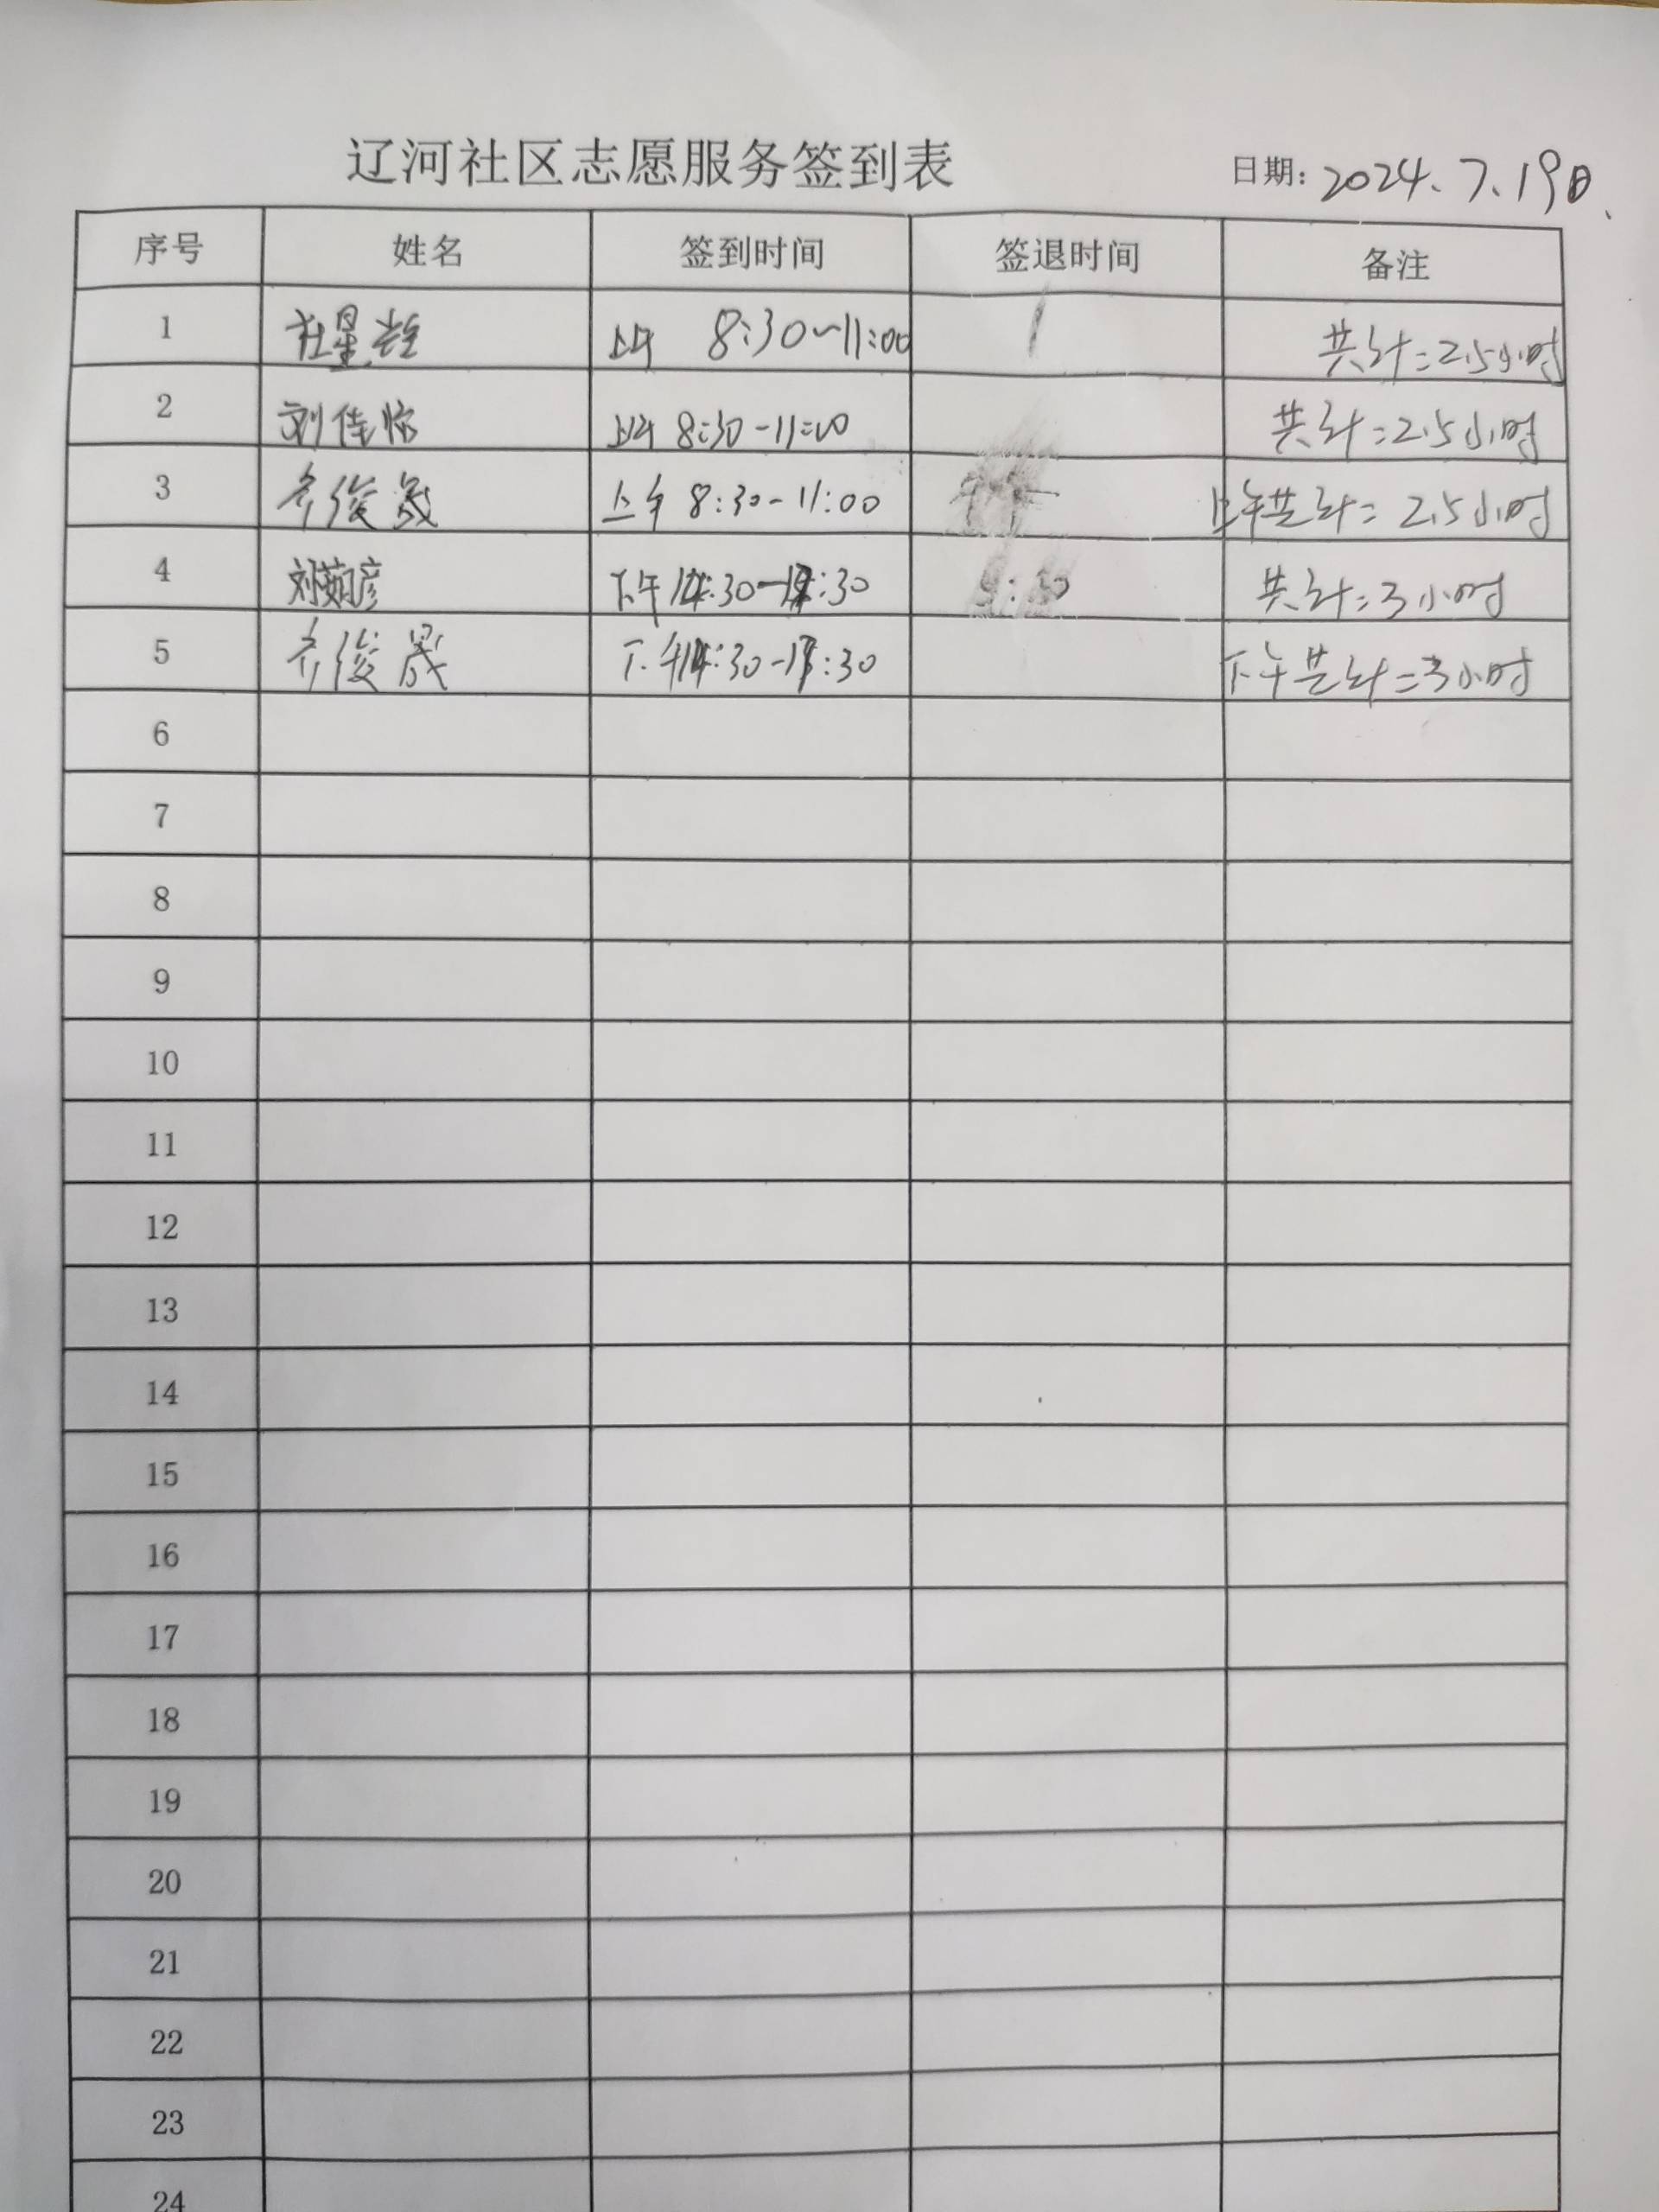 辽河社区志愿服务签到表 日期: 2024.7.19日.
序号 姓名 签到时间 签退时间 备注
1 杜星 上午 8:30~11:00 共计:2.5小时
2 刘佳怡 上午 8:30-11:00 共计:2.5小时
3 齐俊晟 上午 8:30-11:00 上午共计=2.5小时
4 刘茹彦 下午 14:30-17:30 共计:3小时
5 齐俊晟 下午14:30-17:30 下午共计=3小时
6
7
8
9
10
11
12
13
14
15
16
17
18
19
20
21
22
23
24